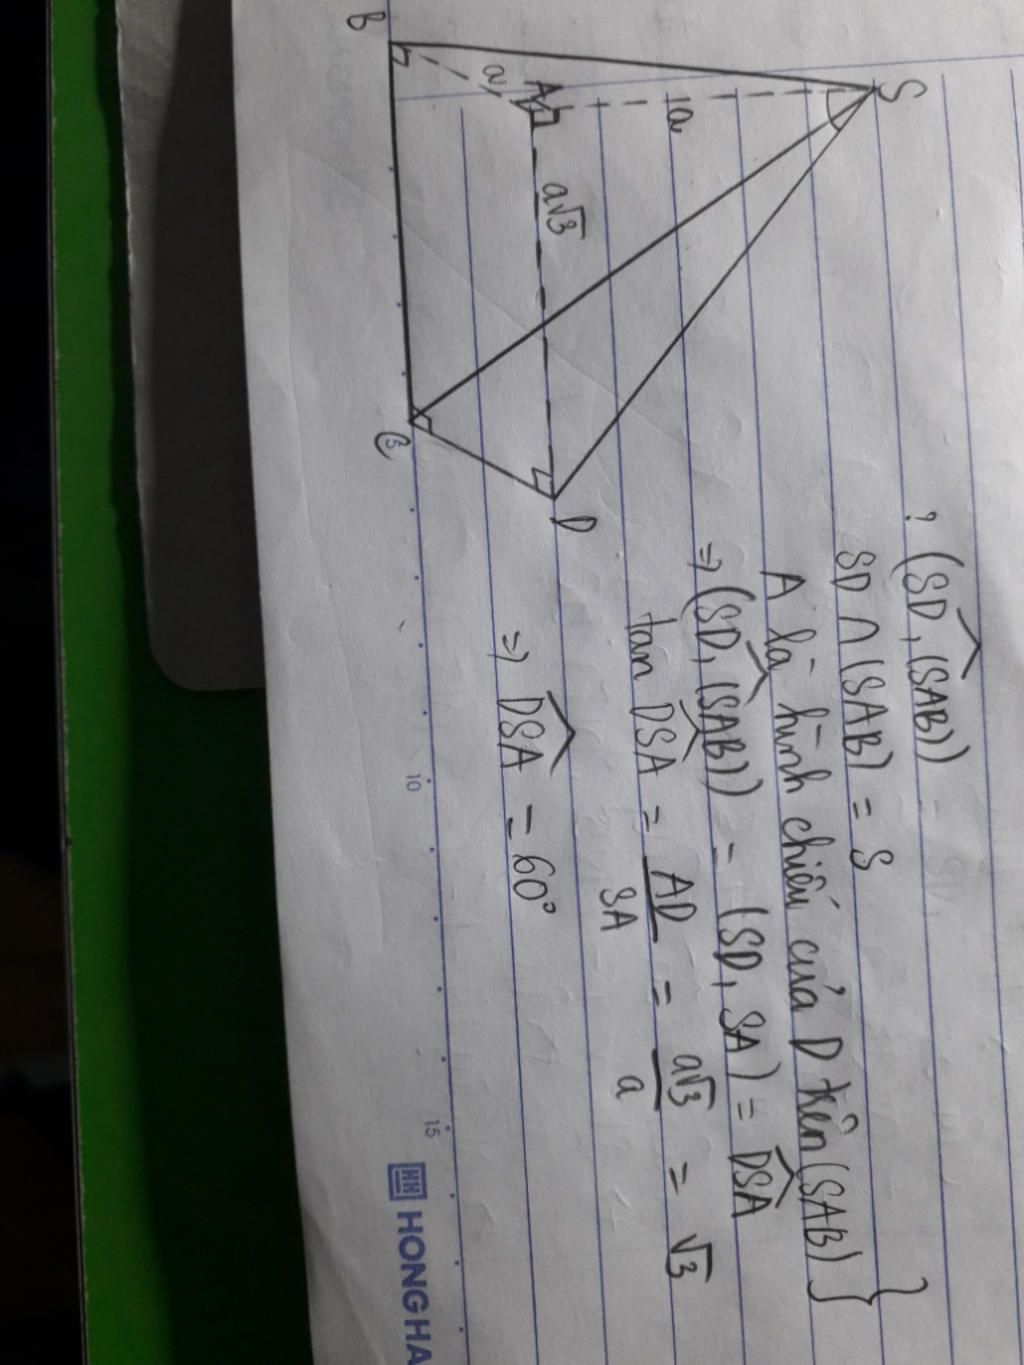 S
B
a
A
a
a√3
C
D
? (SD, (SAB))
SD ∩ (SAB) = S
A là hình chiếu của D trên (SAB) }
⇒ (SD, (SAB)) = (SD, SA) = DSA
tan DSA = AD/SA = a√3/a = √3
⇒ DSA = 60°
5
10
15
HH HONG HA